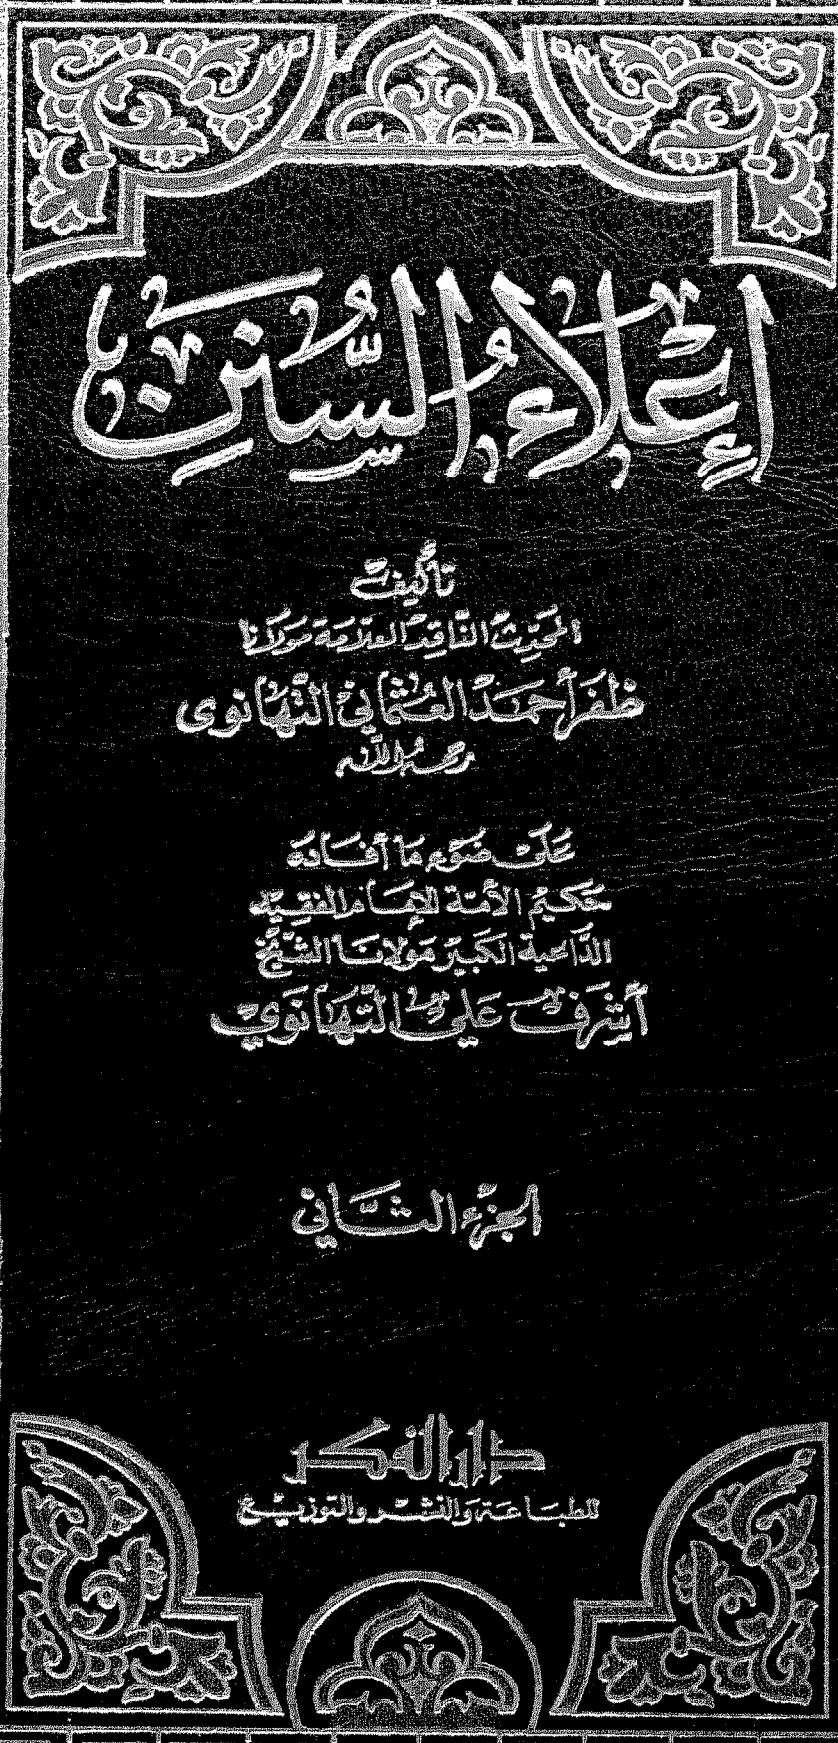 إِعْلَاءُ السُّنَنِ
تأليف
المحدّث الناقد العلّامة مولانا
ظفر أحمد العثماني التهانوى
رحمه الله
على ضوء ما أفاده
حكيم الأمة الإمام الفقيه
الداعية الكبير مولانا الشيخ
أشرف علي التهانوي
الجزء الثاني
دار الفكر
للطباعة والنشر والتوزيع